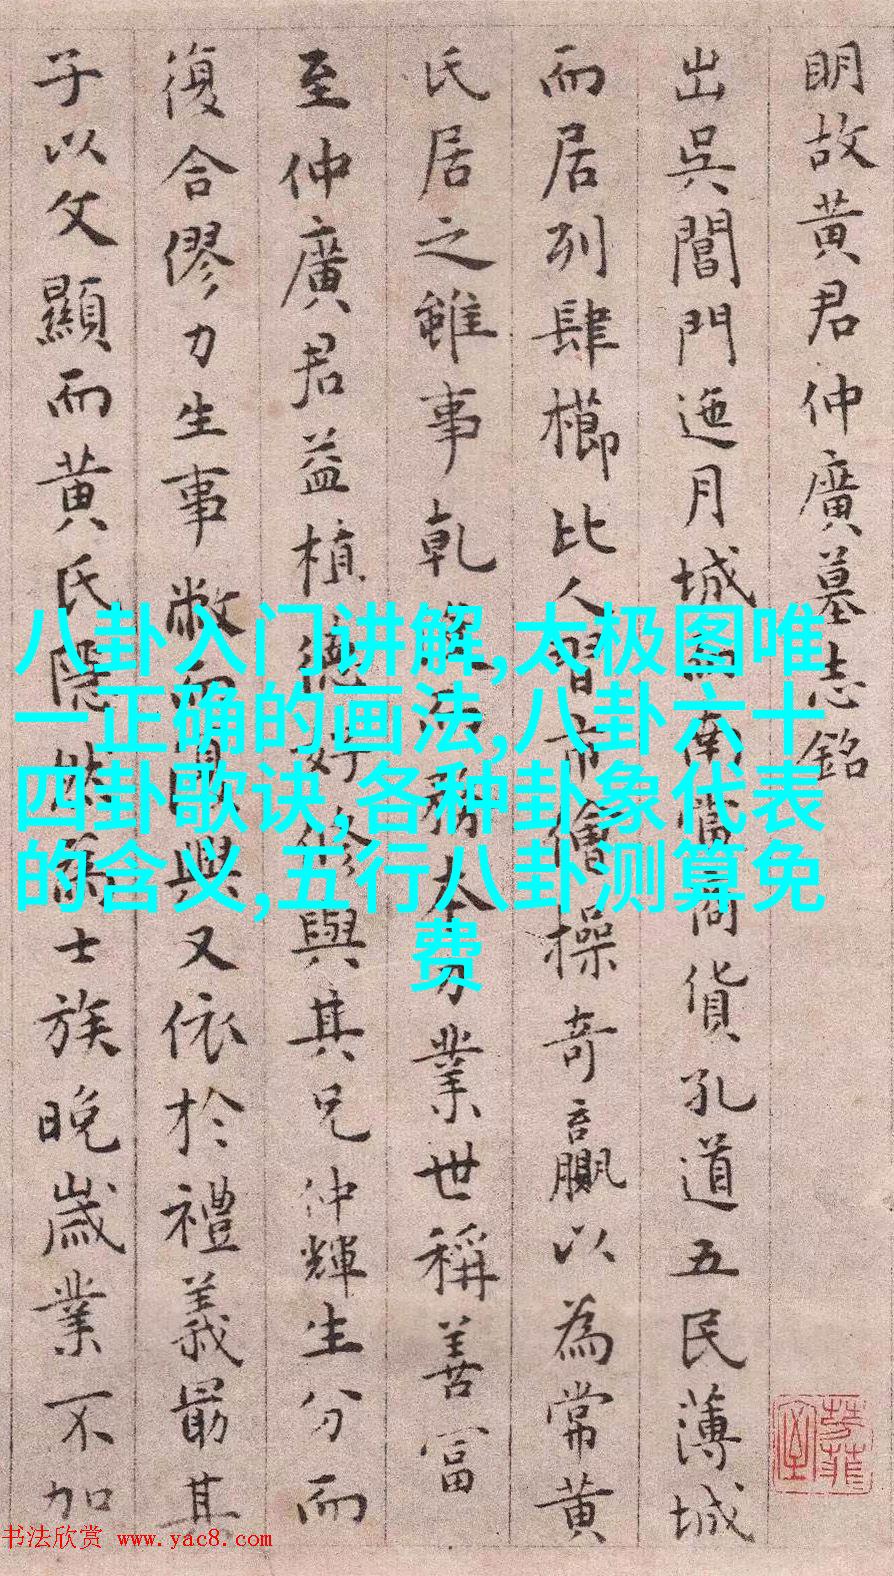 明故黄君仲廣墓志銘
出吳閶門迤月城南當商貨孔道五民薄城
而居列肆櫛比人習市儈操奇贏以為常黄
氏居之雖事乾務本力業世稱善富
至仲廣君益植德好修與其兄仲輝生分而
復合僇力生事敝而興又依於禮義最其
子以文顯而黄氏隱然士族晚歲業不加
八卦入门讲解,太极图唯
一正确的画法,八卦六十
四卦歌诀,各种卦象代表
的含义,五行八卦测算免
费
书法欣赏 www.yac8.com